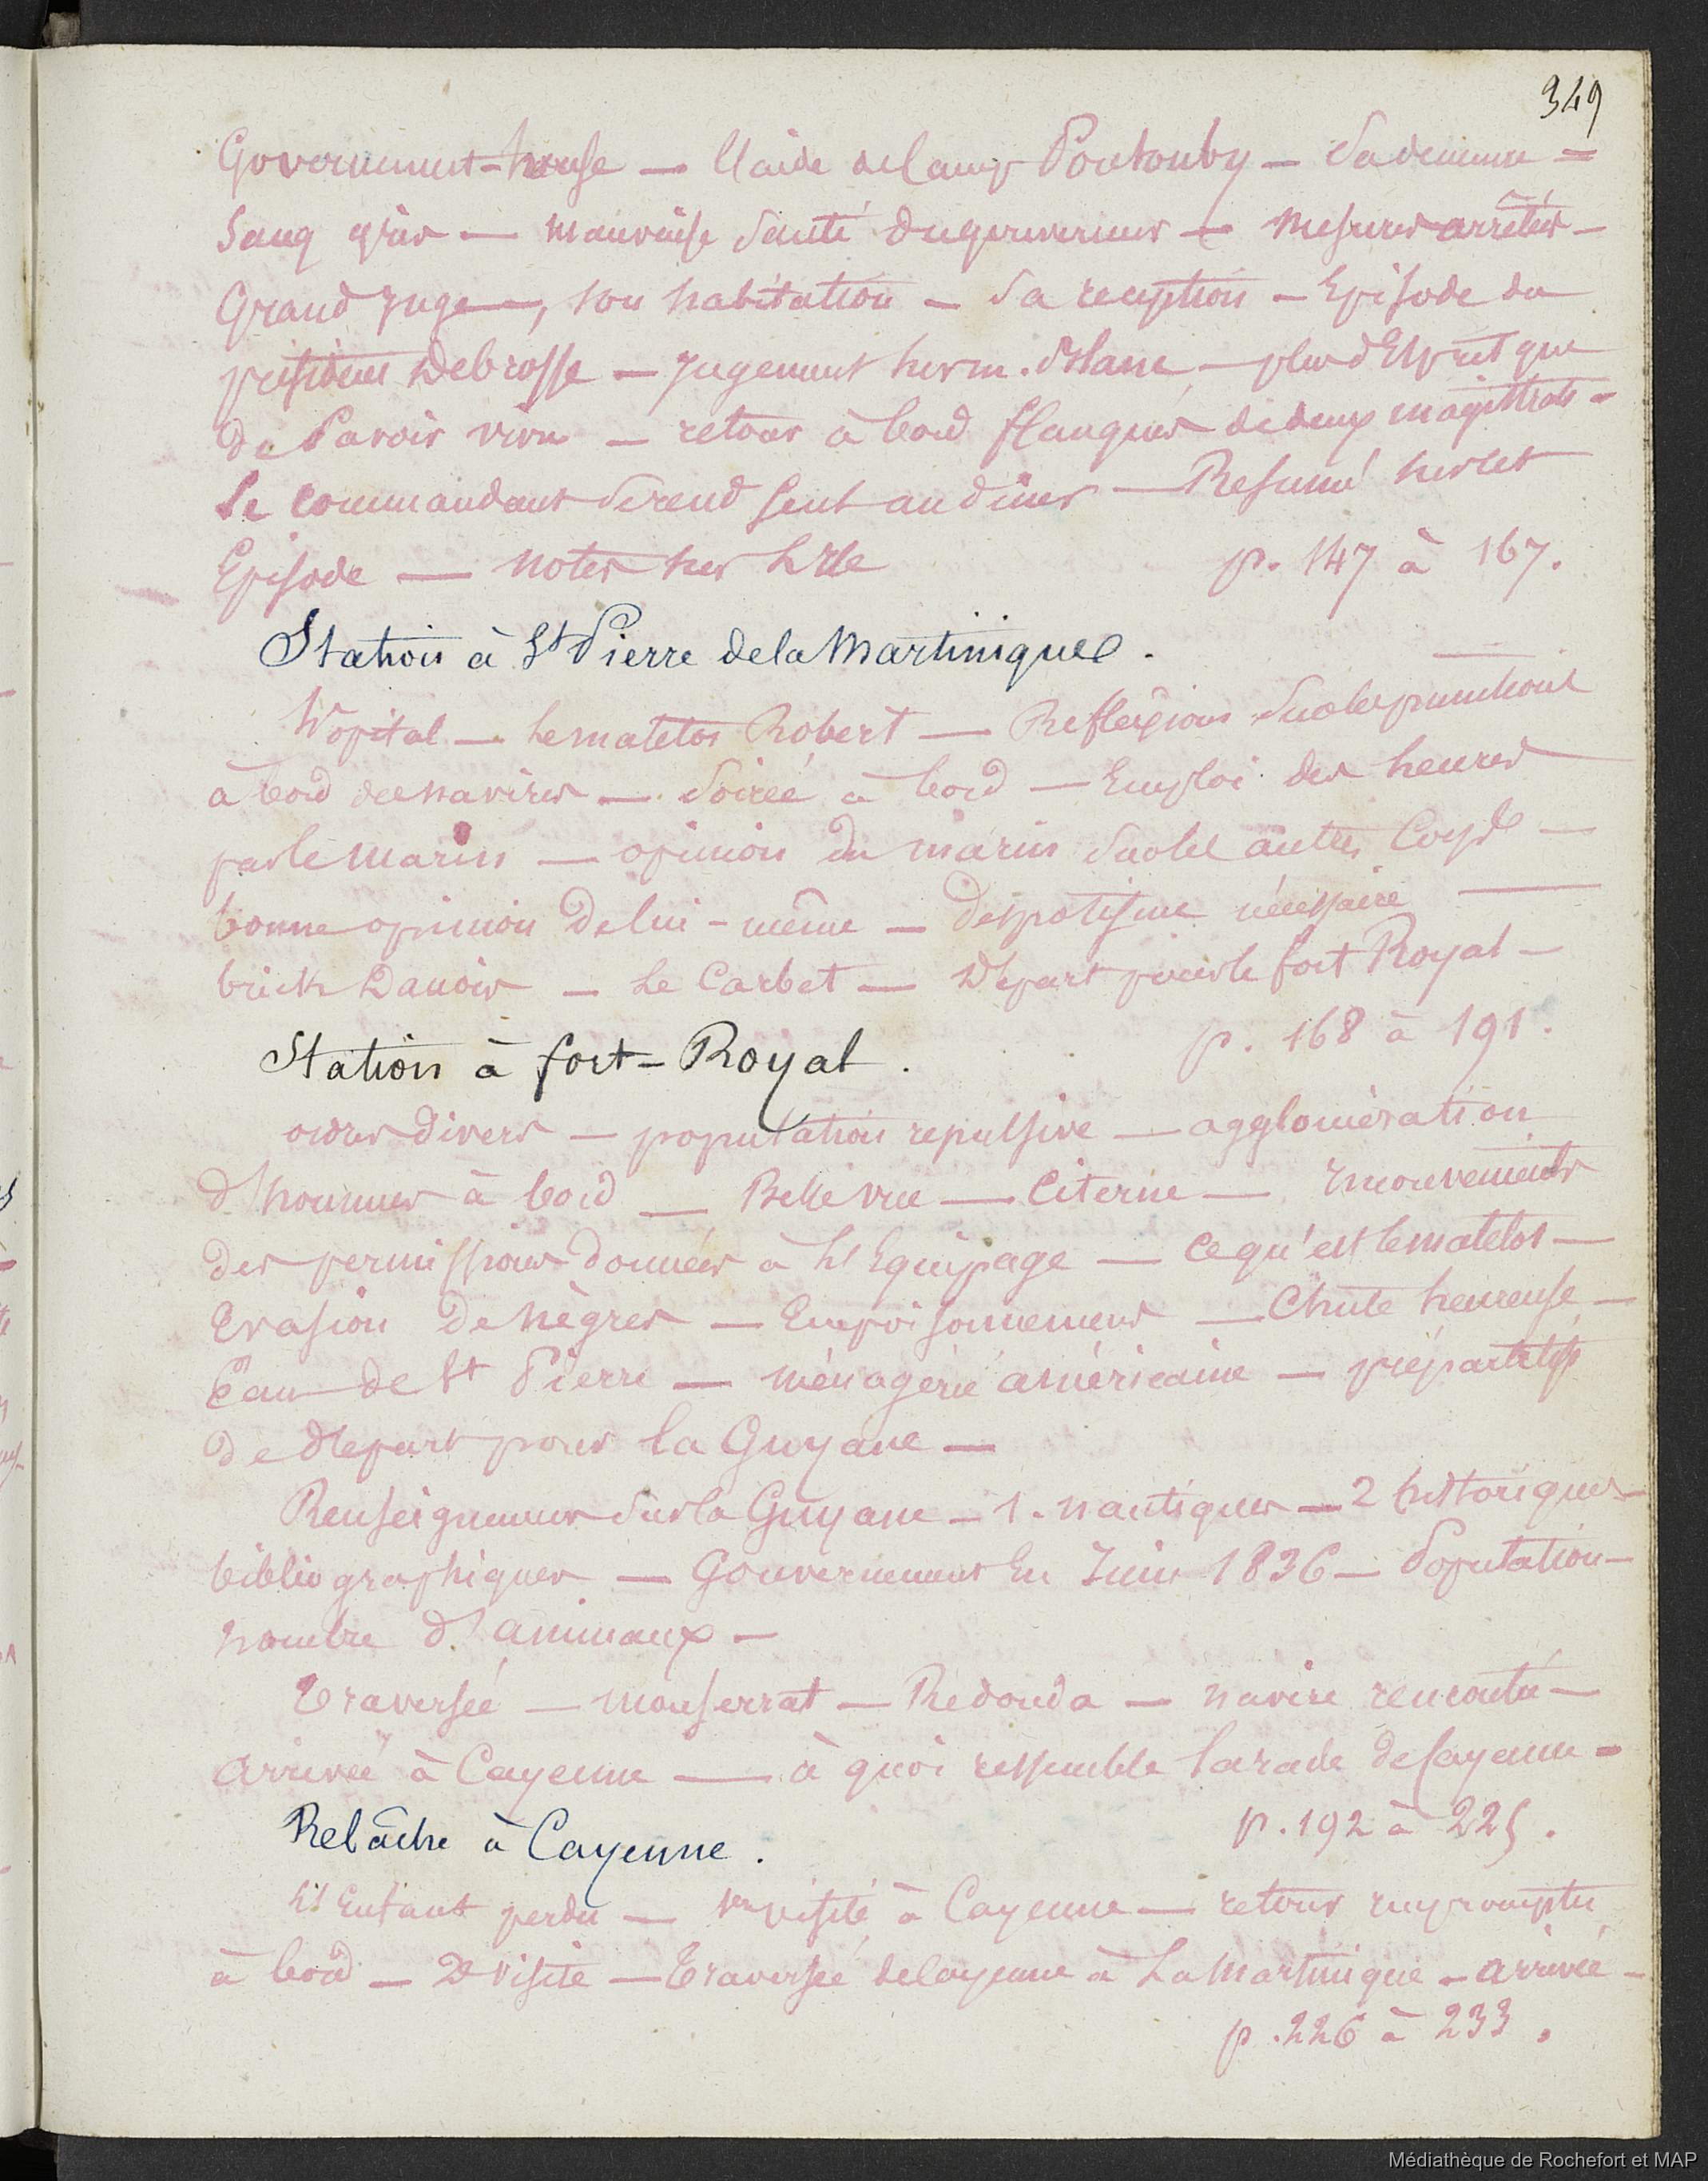 349
Government-house — l'aide de camp Pontonby — Sa demeure =
Sang gris — mauvaise santé du gouverneur — mesures arrêtées —
Grand juge, son habitation — Sa reception — Episode du
président Debrosse — Jugement sur m. — plus d'Esprit que
de Savoir vivre — retour à bord flanqués de deux magistrats —
Le commandant se rend seul au dîner — Resumé sur cet
Episode — notes sur l'Ile p. 147 à 167.
Station à St Pierre de la Martinique.
hopital — Le matelot Robert — Reflexions sur les punitions
à bord des navires — Soirée à bord — Emploi des heures
par le marin — opinion du marin sur les autres Corps —
bonne opinion de lui-même — despotisme nécessaire —
brick Danois — Le Carbet — Départ pour le fort Royal —
p. 168 à 191.
Station à fort-Royal.
ordres divers — population repulsive — agglomération
d'hommes à bord — Bellevue — Citerne — mouvements
des permissions données à l'Equipage — ce qu'est le matelot —
Evasion de nègres — Empoisonnement — Chute heureuse —
Eau de St Pierre — ménagerie américaine — préparatifs
de départ pour la Guyane —
Renseignemens sur la Guyane — 1. nautiques — 2 historiques
bibliographiques — Gouvernement En Juin 1836 — Population —
nombre d'animaux —
Traversée — monserrat — Rédonda — navire rencontré —
arrivée à Cayenne — à quoi ressemble la rade de Cayenne —
p. 192 à 225.
Relâche à Cayenne.
L'Enfant perdu — 1re visite à Cayenne — retour impromptu
à bord — 2e visite — Traversée de Cayenne à La Martinique — arrivée —
p. 226 à 233.
Médiathèque de Rochefort et MAP